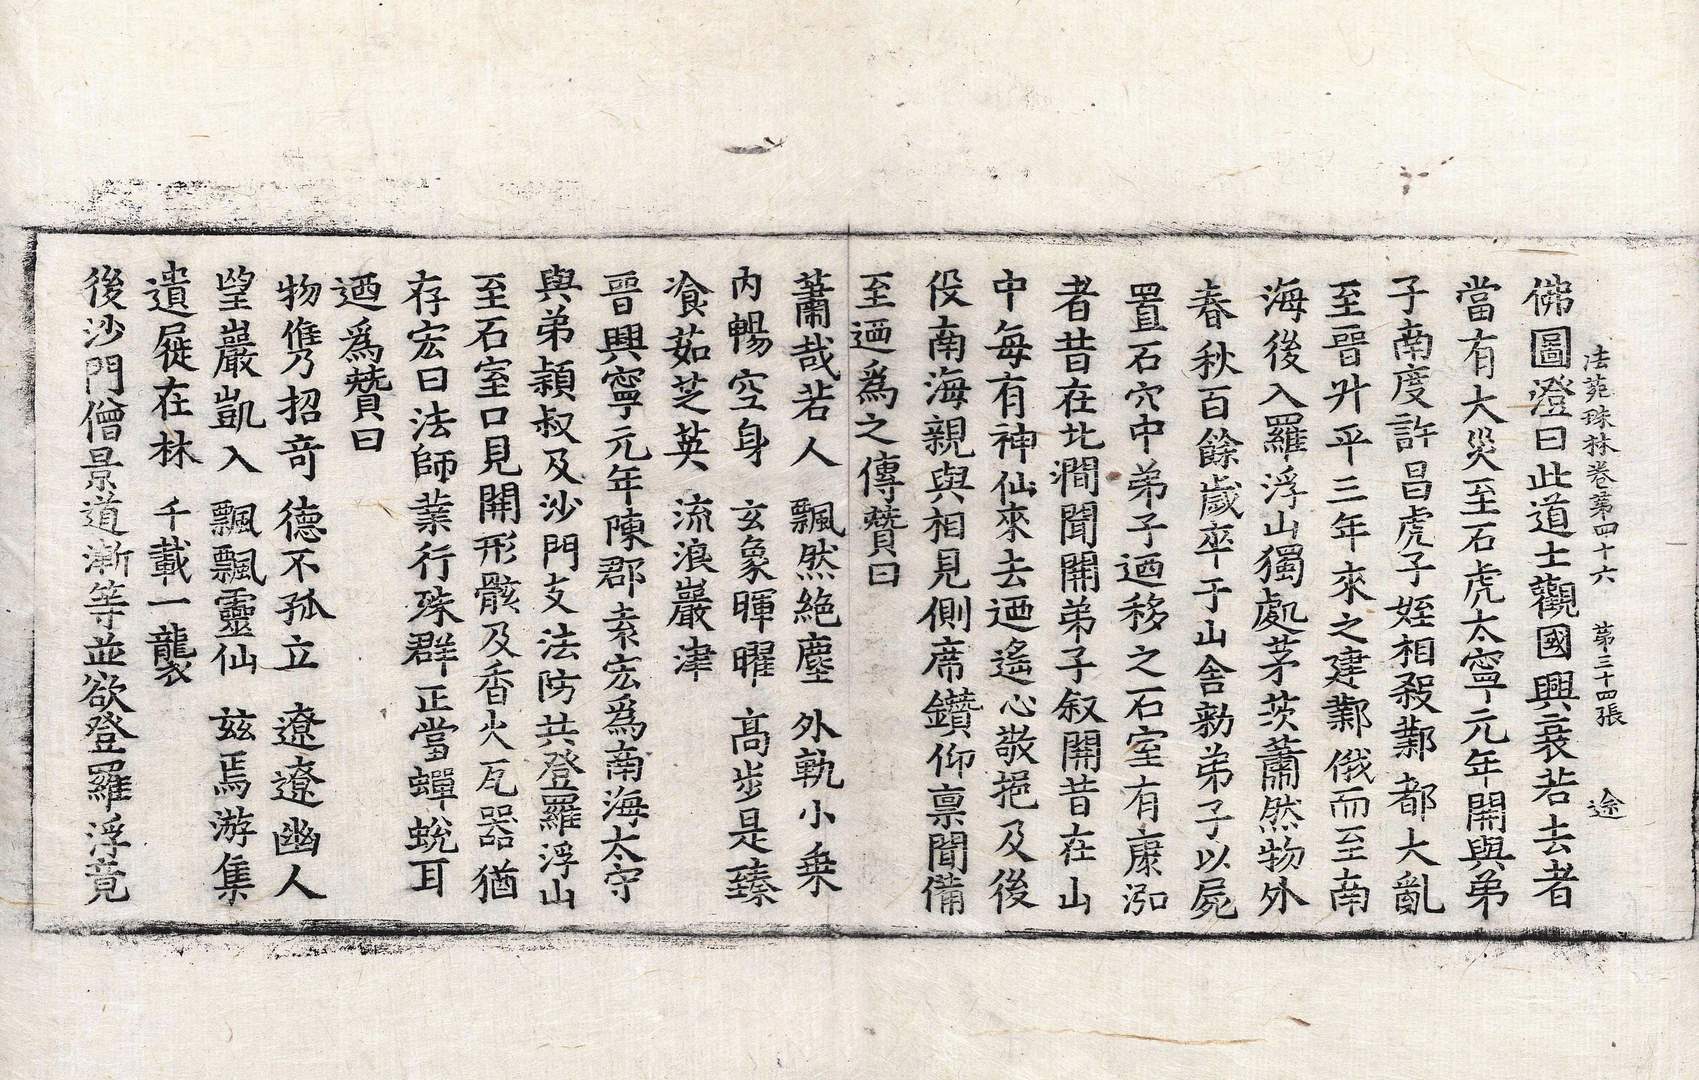 法苑珠林卷第四十六 第三十四張 途
佛圖澄曰此道士觀國興衰若去者
當有大災至石虎太寧元年開與弟
子南度許昌虎子姪相殺鄴都大亂
至晉升平三年來之建鄴俄而至南
海後入羅浮山獨處茅茨蕭然物外
春秋百餘歲卒于山舍勑弟子以屍
置石穴中弟子迺移之石室有康泓
者昔在北澗聞開弟子叙開昔在山
中每有神仙來去迺遙心敬挹及後
役南海親與相見側席鑽仰禀聞備
至迺爲之傳贊曰
蕭哉若人 飄然絶塵 外軌小乗
内暢空身 玄象暉曜 高步是臻
飡茹芝英 流浪巖津
晉興寧元年陳郡袁宏爲南海太守
與弟穎叔及沙門支法防共登羅浮山
至石室口見開形骸及香火瓦器猶
存宏曰法師業行殊群正當蟬蛻耳
迺爲贊曰
物儁招奇 德不孤立 遼遼幽人
望巖凱入 飄飄靈仙 兹焉游集
遺屣在林 千載一襲
後沙門僧景道漸等並欲登羅浮竟